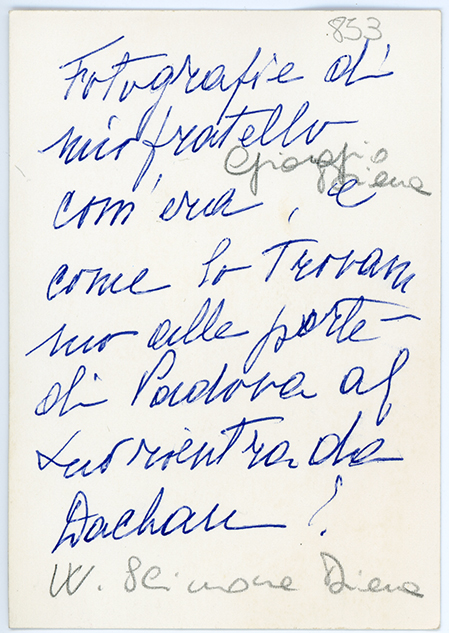 853
Fotografie di
mio fratello
Giorgio
Diena
com'era, e
come lo trovam
mo alle porte
di Padova al
suo rientro da
Dachau!
W. Scimone Diena